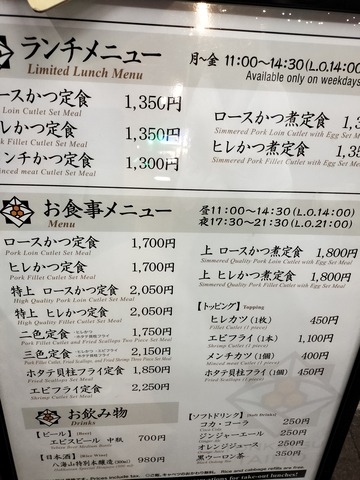 ランチメニュー
Limited Lunch Menu
月~金 11:00~14:30(L.O.14:00)
Available only on weekdays
ースかつ定食 1,350円
Loin Cutlet Set Meal
レかつ定食 1,35
Fillet Cutlet Set Meal
ンチかつ定食 1,300円
inced meat Cutlet Set Meal
ロースかつ煮定食
Simmered Pork Loin Cutlet with Egg Set Me
ヒレかつ煮定食 1,35
Simmered Pork Fillet Cutlet with Egg Set Me
お食事メニュー
Menu
昼11:00~14:30(L.O.14:00)
夜17:30~21:30(L.O.21:00)
ロースかつ定食 1,700円
Pork Loin Cutlet Set Meal
ヒレかつ定食 1,700円
Pork Fillet Cutlet Set Meal
特上 ロースかつ定食 2,050円
High Quality Pork Loin Cutlet Set Meal
特上 ヒレかつ定食 2,050円
High Quality Pork Fillet Cutlet Set Meal
二色定食 1,750円
三色定食 2,150円
ホタテ貝柱フライ定食 1,850円
Fried Scallops Set Meal
エビフライ定食 2,250円
Shrimp Cutlet Set Meal
上 ロースかつ煮定食 1,800円
Simmered Pork Loin Cutlet with Egg Set Meal
上 ヒレかつ煮定食 1,800円
Simmered Pork Fillet Cutlet with Egg Set Meal
【トッピング】Topping
ヒレカツ(1枚) 450円
Fillet Cutlet (1 piece)
エビフライ(1本) 1,100円
Shrimp Cutlet (1 piece)
メンチカツ(1個) 400円
Minced meat Cutlet (1 piece)
ホタテ貝柱(1個) 450円
Fried Scallops (1 piece)
お飲み物
Drinks
【ビール】(Beer)
エビスビール 中瓶 700円
【日本酒】
八海山特別本醸造 980円
【ソフトドリンク】(Soft Drinks)
コカ・コーラ 250円
ジンジャーエール 250円
オレンジジュース 250円
黒ウーロン茶 350円
Prices include tax.
Rice and cabbage refills are free.